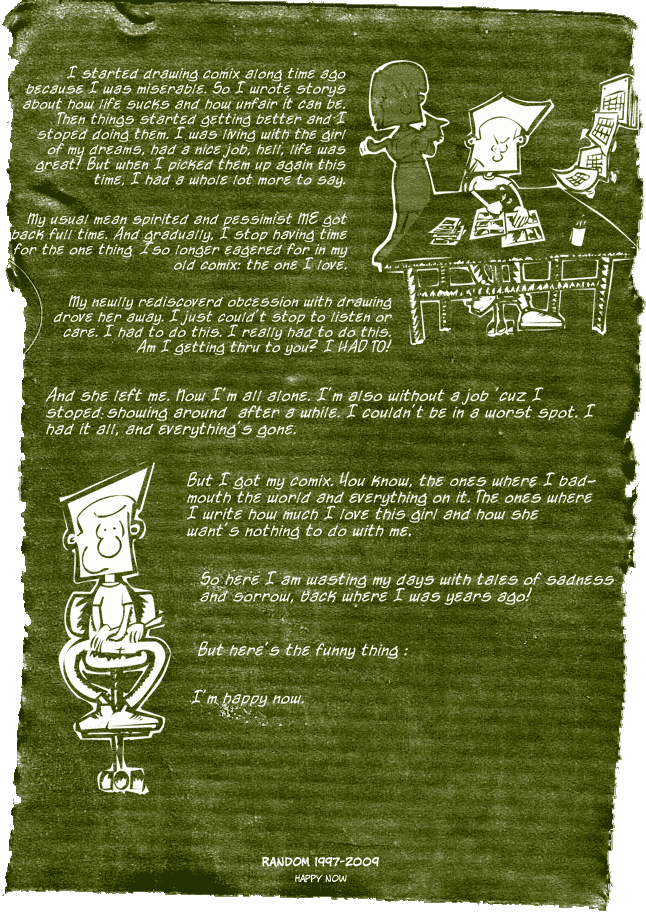 I started drawing comix along time ago
because I was miserable. So I wrote storys
about how life sucks and how unfair it can be.
Then things started getting better and I
stoped doing them. I was living with the girl
of my dreams, had a nice job, hell, life was
great! But when I picked them up again this
time, I had a whole lot more to say.
My usual mean spirited and pessimist ME got
back full time. And gradually, I stop having time
for the one thing I so longer eagered for in my
old comix: the one I love.
My newlly rediscoverd obcession with drawing
drove her away. I just couldn't stop to listen or
care. I had to do this. I really had to do this.
Am I getting thru to you? I HAD TO!
And she left me. Now I'm all alone. I'm also without a job 'cuz I
stoped showing around after a while. I couldn't be in a worst spot. I
had it all, and everything's gone.
But I got my comix. You know, the ones where I bad-
mouth the world and everything on it. The ones where
I write how much I love this girl and how she
want's nothing to do with me.
So here I am wasting my days with tales of sadness
and sorrow, back where I was years ago!
But here's the funny thing :
I'm happy now.
RANDOM 1997-2009
HAPPY NOW